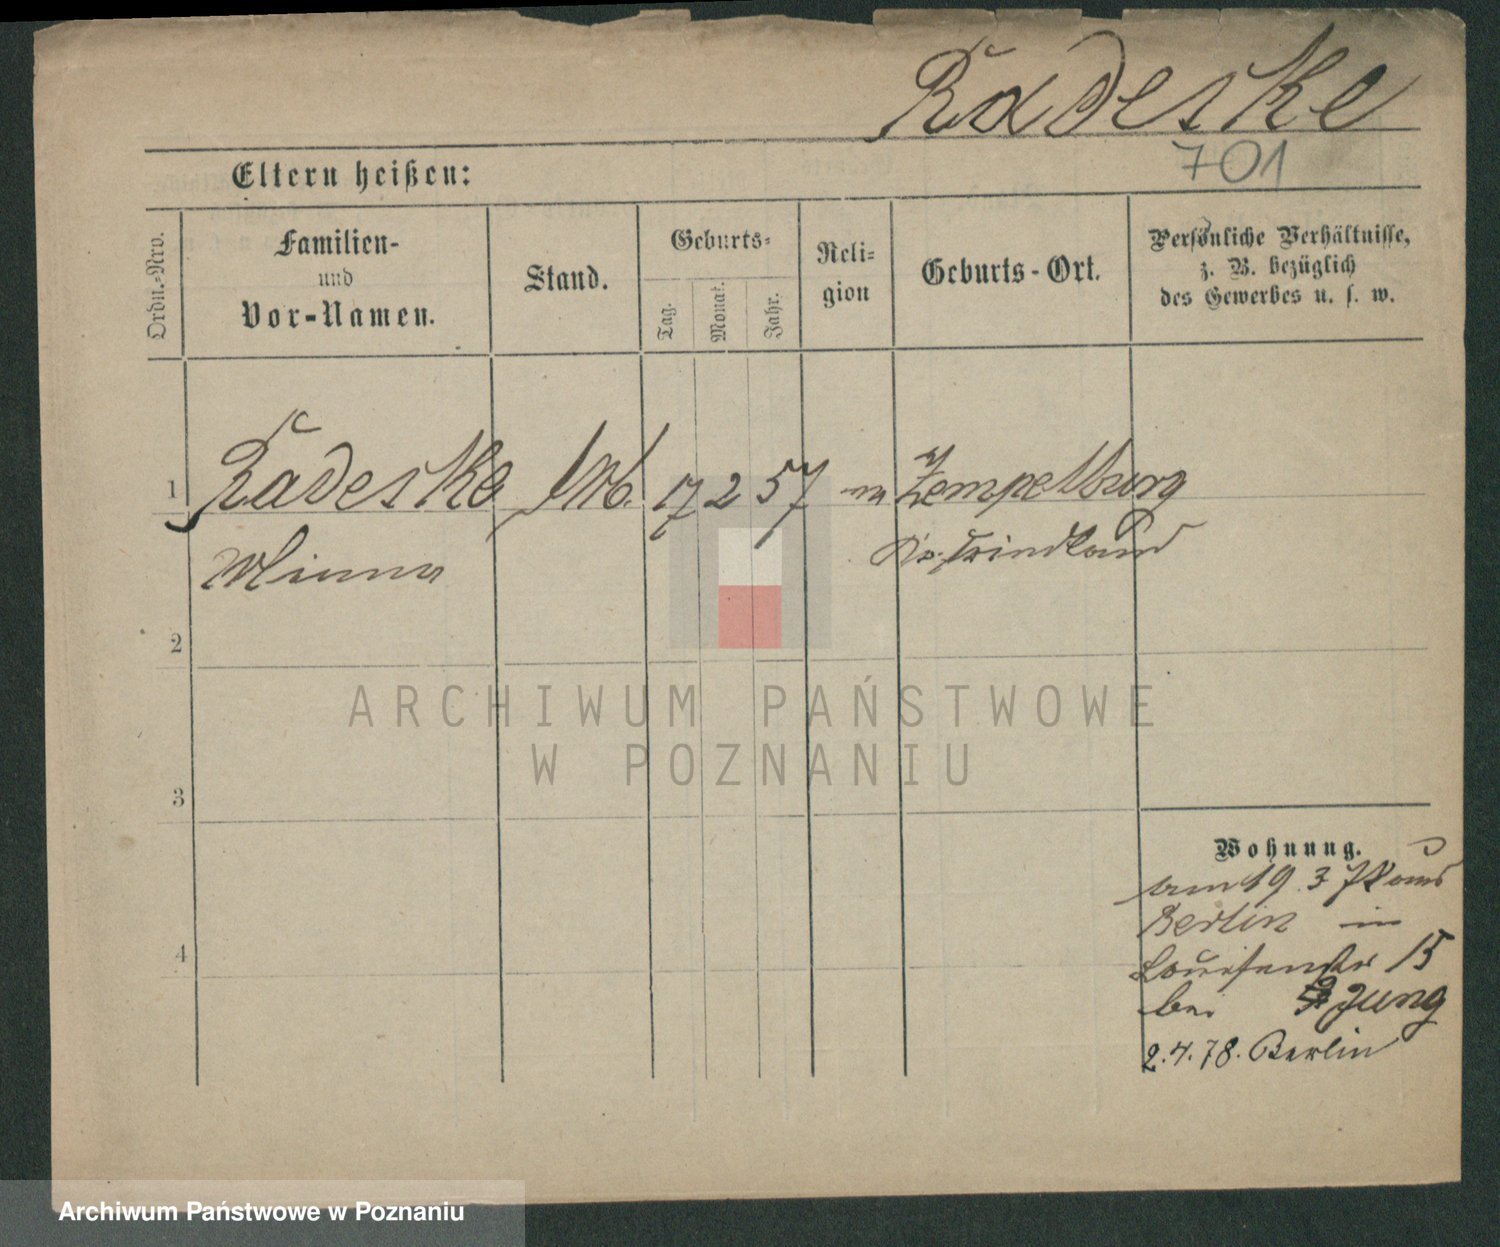 Radeske
701
Eltern heißen:
Ordn.-Nro.
Familien-
und
Vor-Namen.
Stand.
Geburts-
Tag.
Monat.
Jahr.
Reli-
gion
Geburts-Ort.
Persönliche Verhältnisse,
z. B. bezüglich
des Gewerbes u. s. w.
1
Radeske
17 2 57
Zempelburg
Minna
2
3
4
Wohnung.
am 19 3 78 aus
Berlin in
Louisenstr 15
bei Jung
2.4.78. Berlin
ARCHIWUM PAŃSTWOWE
W POZNANIU
Archiwum Państwowe w Poznaniu